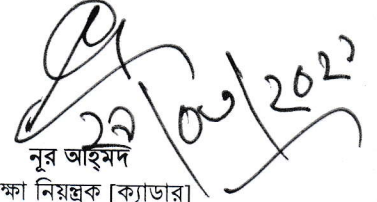 ২৯/০৩/২০২১
নূর আহ্‌মদ
ক্ষা নিয়ন্ত্রক [ক্যাডার]